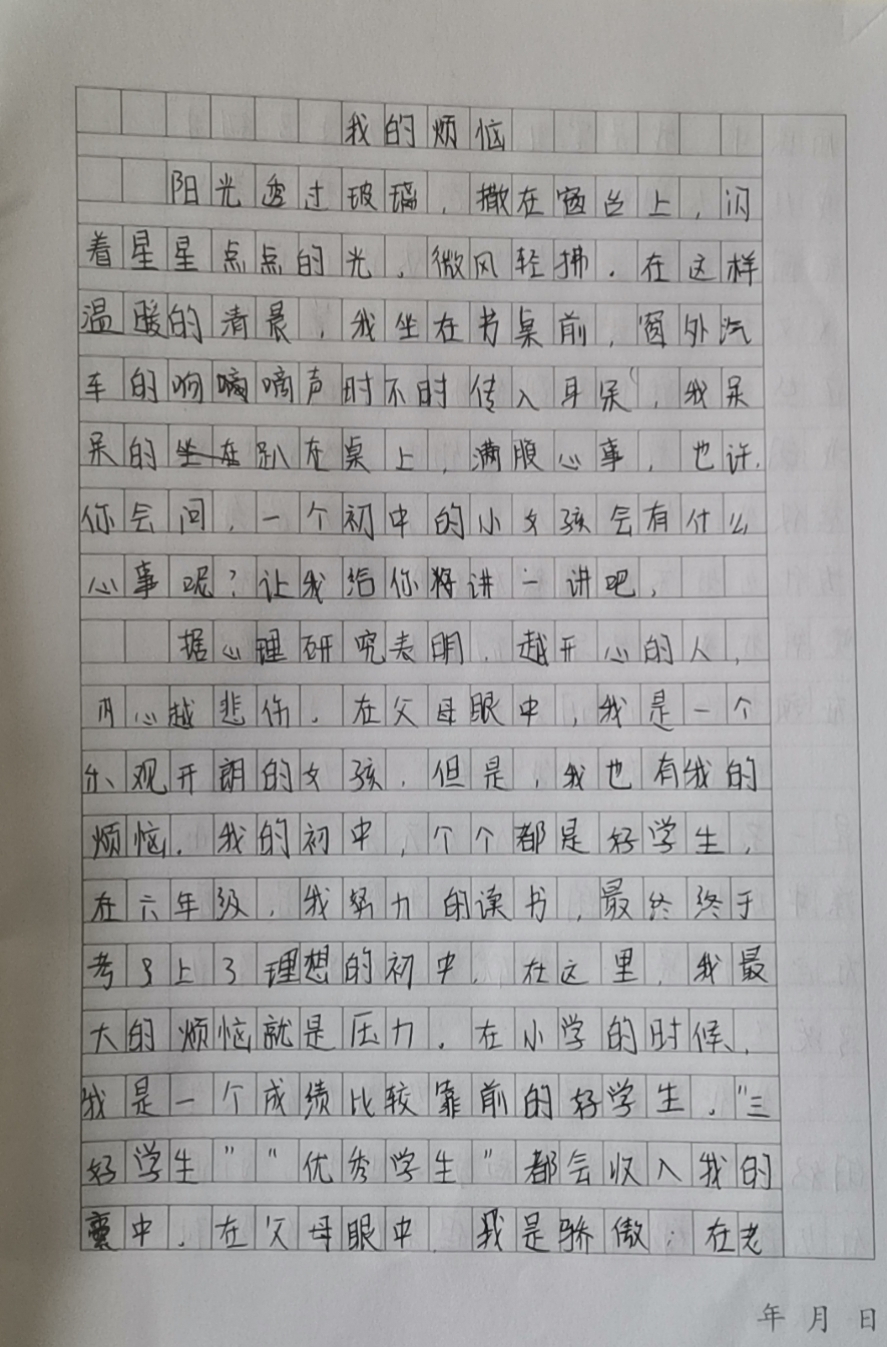 我的烦恼
阳光透过玻璃，撒在窗台上，闪
着星星点点的光，微风轻拂．在这样
温暖的清晨，我坐在书桌前，窗外汽
车的响嘀嘀声时不时传入耳朵，我呆
呆的趴在桌上，满腹心事，也许．
你会问，一个初中的小女孩会有什么
心事呢？让我给你讲一讲吧，
据心理研究表明，越开心的人，
内心越悲伤．在父母眼中，我是一个
乐观开朗的女孩．但是，我也有我的
烦恼．我的初中，个个都是好学生，
在六年级，我努力的读书，最终终于
考上了理想的初中．在这里，我最
大的烦恼就是压力．在小学的时候，
我是一个成绩比较靠前的好学生．"三
好学生""优秀学生"都会收入我的
囊中．在父母眼中．我是骄傲；在老
年 月 日